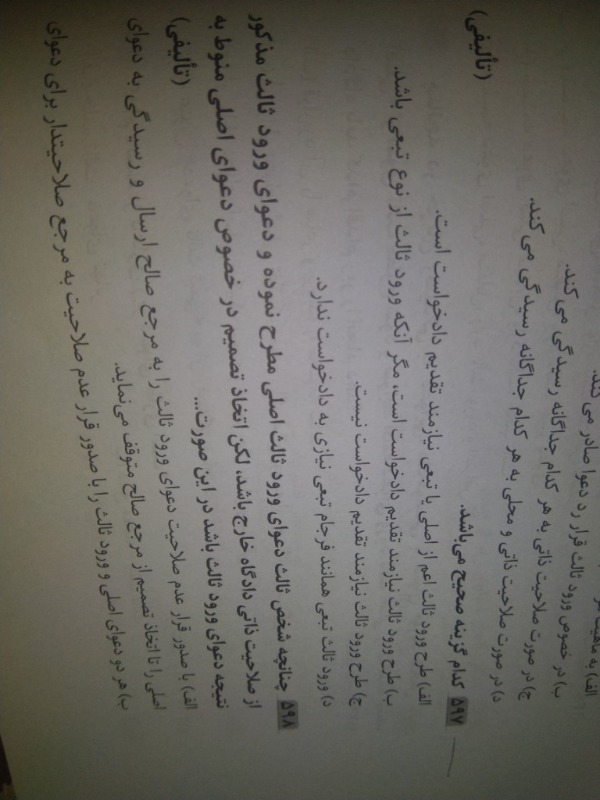 الف) به ماهیت هر
می کند.
ب) در خصوص ورود ثالث قرار رد دعوا صادر می کند.
ج) در صورت صلاحیت ذاتی به هر کدام جداگانه رسیدگی می کند.
د) در صورت صلاحیت ذاتی و محلی به هر کدام جداگانه رسیدگی می کند.
۵۹۷ کدام گزینه صحیح می‌باشد. (تألیفی)
الف) طرح ورود ثالث اعم از اصلی یا تبعی نیازمند تقدیم دادخواست است.
ب) طرح ورود ثالث نیازمند تقدیم دادخواست است، مگر آنکه ورود ثالث از نوع تبعی باشد.
ج) طرح ورود ثالث نیازمند تقدیم دادخواست نیست.
د) ورود ثالث تبعی همانند فرجام تبعی نیازی به دادخواست ندارد.
۵۹۸ چنانچه شخص ثالث دعوای ورود ثالث اصلی مطرح نموده و دعوای ورود ثالث مذکور
از صلاحیت ذاتی دادگاه خارج باشد، لکن اتخاذ تصمیم در خصوص دعوای اصلی منوط به
نتیجه دعوای ورود ثالث باشد در این صورت... (تألیفی)
الف) با صدور قرار عدم صلاحیت دعوای ورود ثالث را به مرجع صالح ارسال و رسیدگی به دعوای
اصلی را تا اتخاذ تصمیم از مرجع صالح متوقف می‌نماید.
ب) هر دو دعوای اصلی و ورود ثالث را با صدور قرار عدم صلاحیت به مرجع صلاحیتدار برای دعوای